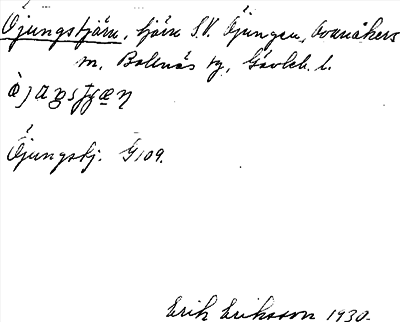 Öjungstjärn, tjärn S.V. Öjungen, Ovanåkers
m, Bollnäs tg, Gävleb. l.
Öjungstj. G109.
Erik Eriksson 1930.